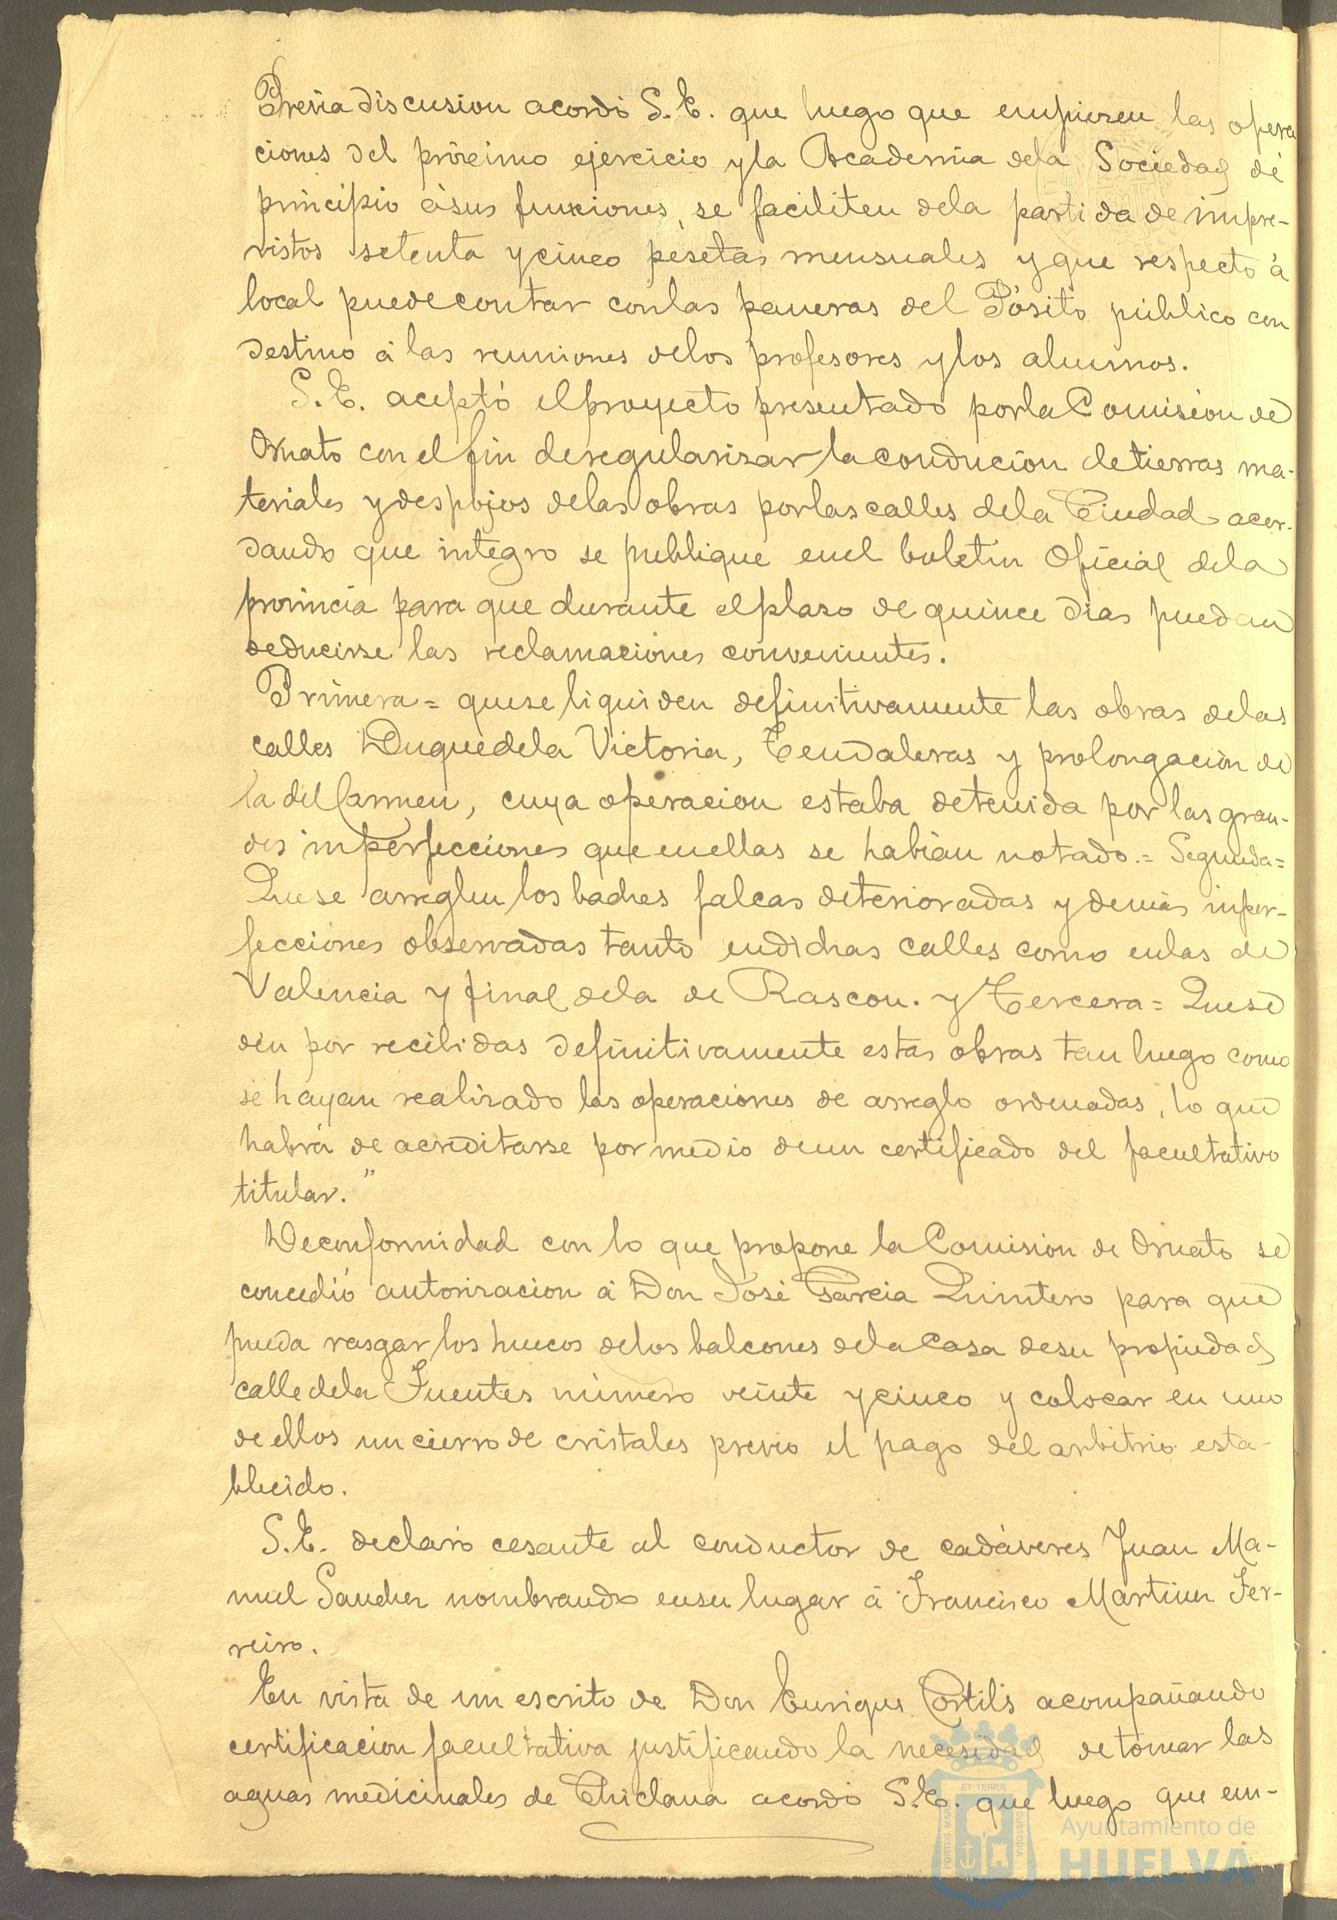 Previa discusion acordó S.E. que luego que empiezen las opera
ciones del próximo ejercicio y la Academia dela Sociedad dé
principio á sus funciones, se faciliten dela partida de impre-
vistos setenta y cinco pesetas mensuales y que respecto á
local puede contar con las paneras del Pósito público con
destino á las reuniones delos profesores y los alumnos.
S.E. aceptó el proyecto presentado por la Comision de
Ornato con el fin de regularizar la conducion de tierras ma-
teriales y despojos delas obras por las calles dela Ciudad acor-
dando que integro se publique en el boletin Oficial dela
provincia para que durante el plazo de quince dias puedan
deducirse las reclamaciones convenientes.
Primera = que se liquiden definitivamente las obras delas
calles Duque dela Victoria, Tendaleras y prolongación de
la del Carmen, cuya operacion estaba detenida por las gran-
des imperfecciones que en ellas se habian notado. = Segunda =
Que se arreglen los baches falcas deterioradas y demás imper-
fecciones observadas tanto en dichas calles como en las de
Valencia y final dela de Rascon. y Tercera = Que se
den por recibidas definitivamente estas obras tan luego como
se hayan realizado las operaciones de arreglo ordenadas, lo que
habrá de acreditarse por medio de un certificado del facultativo
titular."
De conformidad con lo que propone la Comision de Ornato se
concedió autorizacion á Don José Garcia Quintero para que
pueda rasgar los huecos delos balcones dela Casa de su propiedad
calle dela Fuentes número veinte y cinco y colocar en uno
de ellos un cierro de cristales previo el pago del arbitrio esta-
blecido.
S.E. declaró cesante al conductor de cadáveres Juan Ma-
nuel Sanchez nombrando en su lugar á Francisco Martinez Fer-
reiro.
En vista de un escrito de Don Enrique Cortils acompañando
certificacion facultativa justificando la necesidad de tomar las
aguas medicinales de Chiclana acordó S.E. que luego que em-
Ayuntamiento de
HUELVA